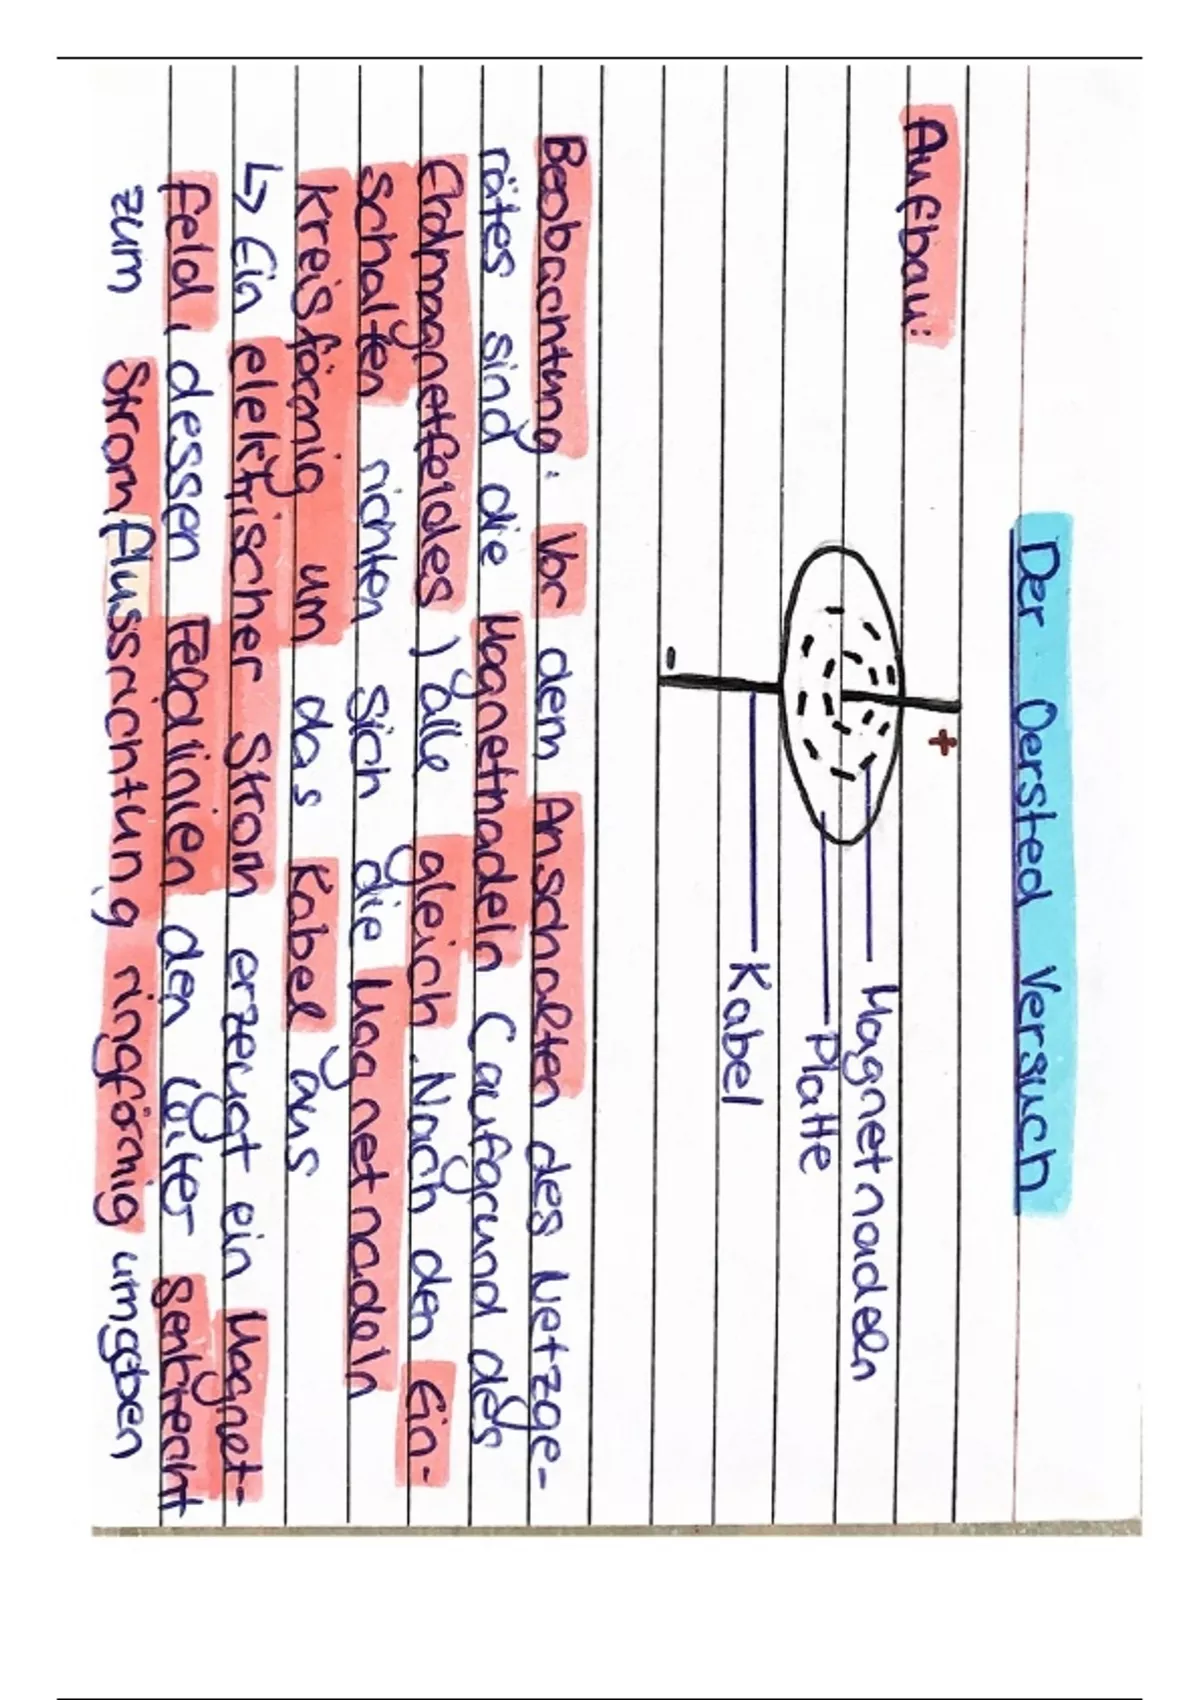 Der Oersted Versuch
Aufbau:
+
Magnetnadeln
Platte
Kabel
-
Beobachtung: Vor dem Anschalten des Netzge-
rätes sind die Magnetnadeln (aufgrund des
Erdmagnetfeldes) alle gleich. Nach den Ein-
schalten richten sich die Magnetnadeln
kreisförmig um das Kabel aus
↳ Ein elektrischer Strom erzeugt ein Magnet-
feld, dessen Feldlinien den Leiter senkrecht
zum Stromflussrichtung ringförmig umgeben